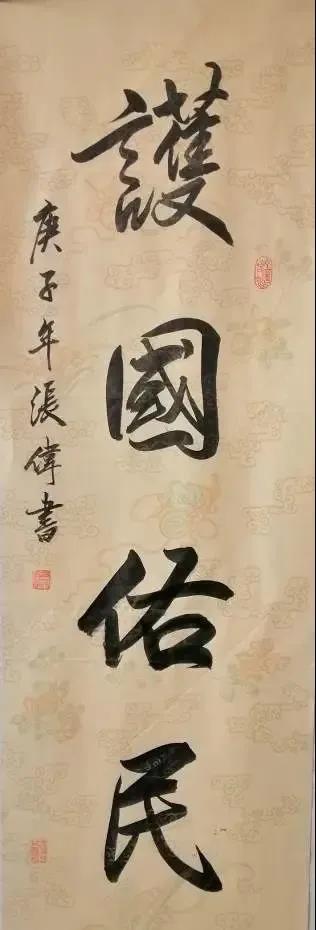 護國佑民
庚子年張偉書